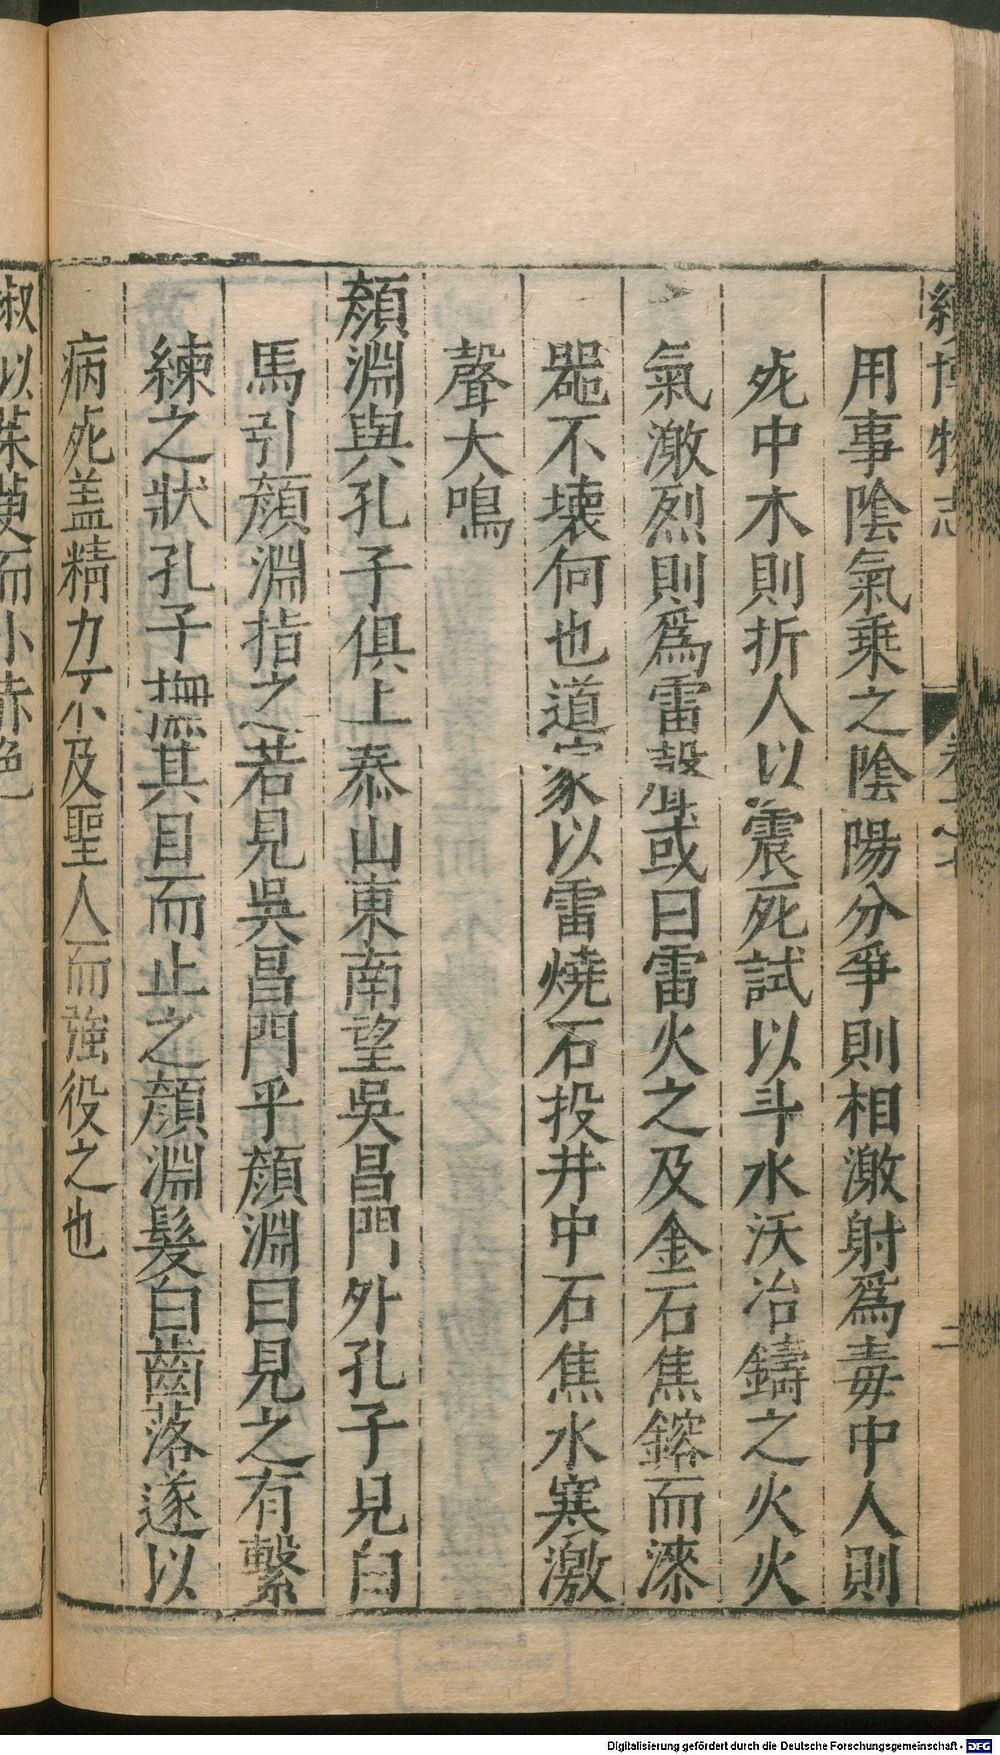 續博物志
二
用事陰氣乗之陰陽分爭則相激射爲毒中人則
死中木則折人以震死試以斗水沃冶鑄之火火
氣激烈則爲雷聲或曰雷火之及金石焦鎔而漆
噐不壊何也道家以雷燒石投井中石焦水寒激
聲大鳴
顏淵與孔子俱上泰山東南望吳昌門外孔子見白
馬引顏淵指之若見吳昌門乎顏淵曰見之有繫
練之狀孔子撫其目而止之顏淵髮白齒落遂以
病死盖精力不及聖人而強役之也
而小赤色
Digitalisierung gefördert durch die Deutsche Forschungsgemeinschaft - DFG